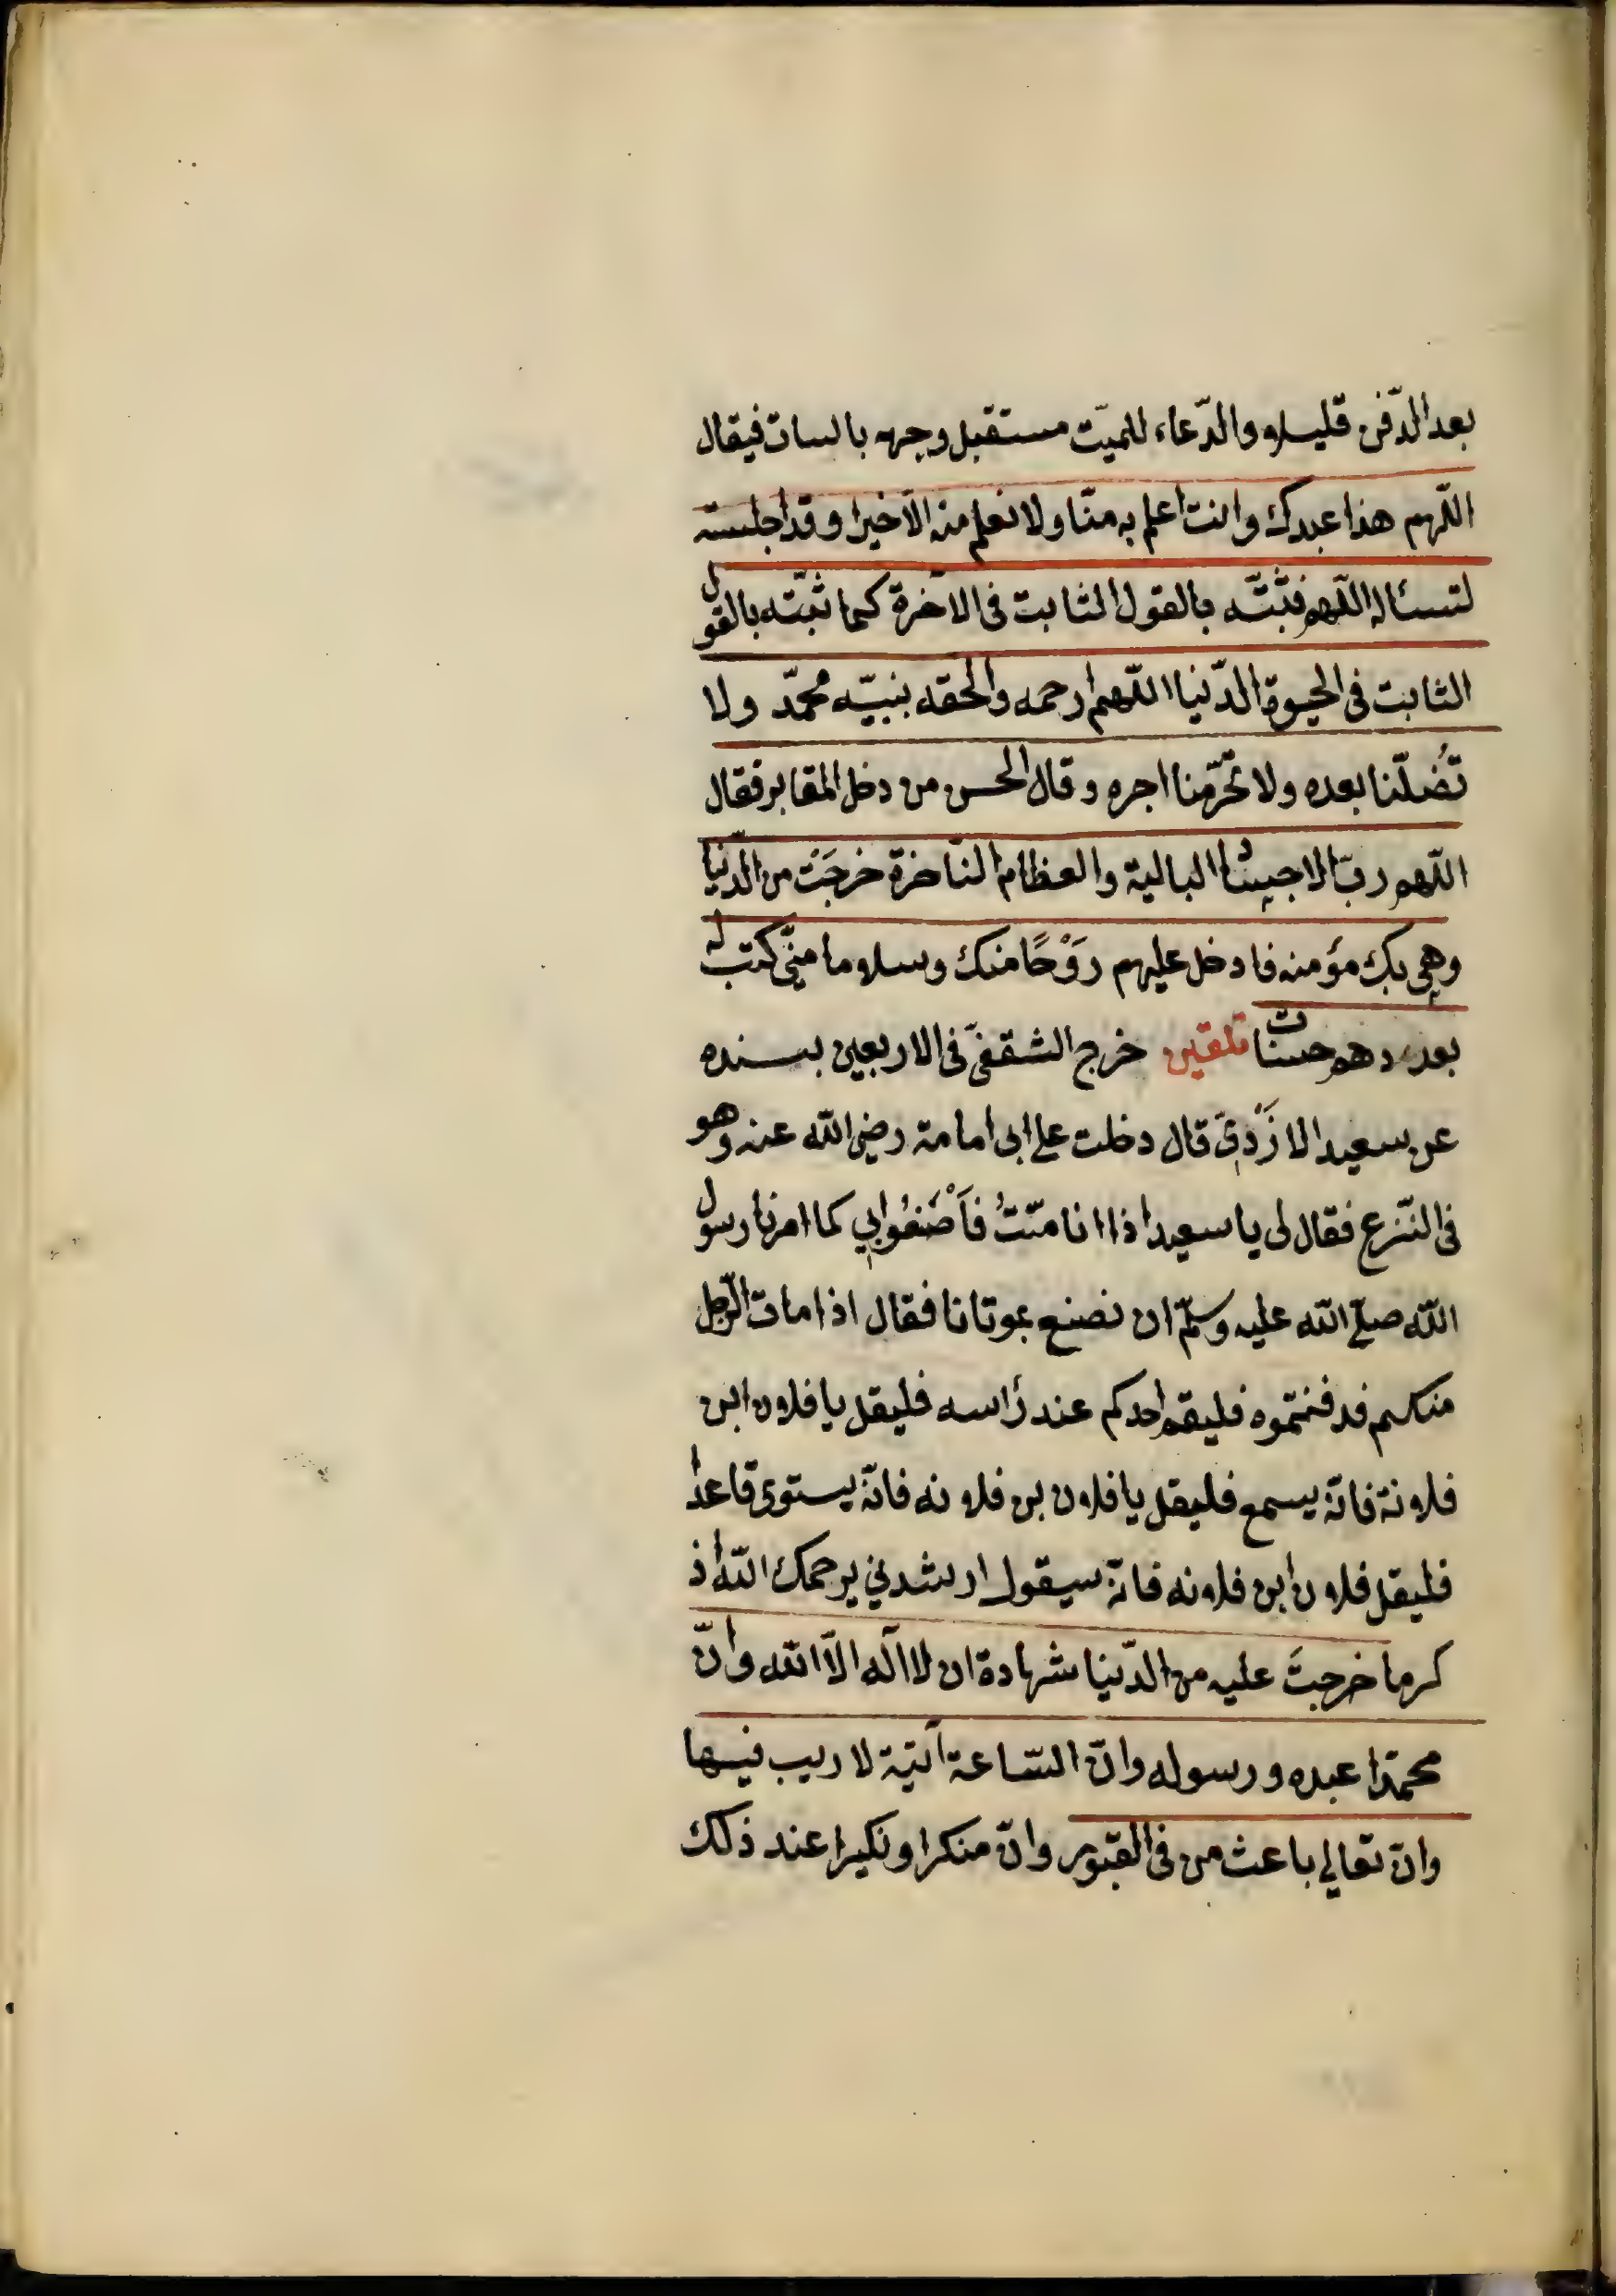 بعد الدّفن قليلا والدّعاء للميّت مستقبل وجهه بالسات فيقال
اللّهم هذا عبدك وانت اعلم به منّا ولا نعلم منه الّا خيرا وقد اجلسته
لتسئاله اللّهم فثبّته بالقول الثابت فى الآخرة كما ثبّته بالقول
الثابت فى الحيوة الدّنيا اللّهم ارحمه والحقه بنبيّه محمّد ولا
تُضلّنا بعده ولا تحّرمنا اجره وقال الحسن من دخل المقابر فقال
اللّهم ربّ الاجساد البالية والعظام النّاخرة خرجَتْ من الدّنيا
وهى بك مؤمنه فادخل عليهم رَوْحًا منك وسلاما منّى كتب له
بعددهم حسنات تلقين خرج الشقفىّ فى الاربعين بسنده
عن سعيد الازْدىّ قال دخلت على ابى امامة رضى الله عنه وهو
فى النّزع فقال لى يا سعيد اذا انا متّتُ فاَصْنعُوا بى كما امرنا رسول
الله صلّى الله عليه وسلّم ان نصنع بموتانا فقال اذا مات الرّجل
منكم فدفنتموه فليقم احدكم عند رأسه فليقل يا فلان ابن
فلانة فانّه يسمع فليقل يا فلان بن فلانه فانّه يستوى قاعدا
فليقل فلان ابن فلانه فانّه سيقول ارشدنى يرحمك الله اذ
كر ما خرجتَ عليه من الدّنيا شهادة ان لا اله الّا الله وانّ
محمّدا عبده ورسوله وانّ السّاعة آتية لا ريب فيها
وانّ تعالى باعث من فى القبور وانّ منكرا ونكيرا عند ذلك